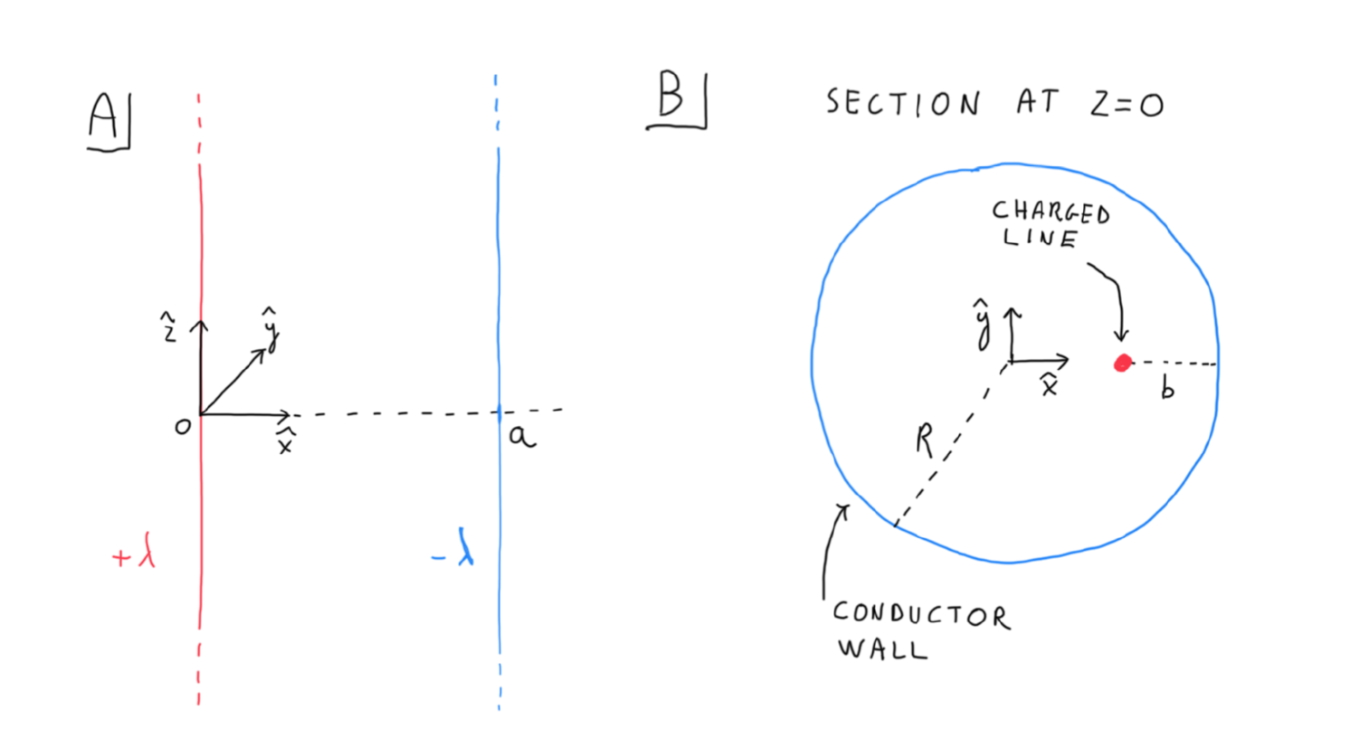 A
ẑ
ŷ
O
x̂
a
+λ
-λ
B
SECTION AT Z=0
CHARGED
LINE
ŷ
x̂
b
R
CONDUCTOR
WALL